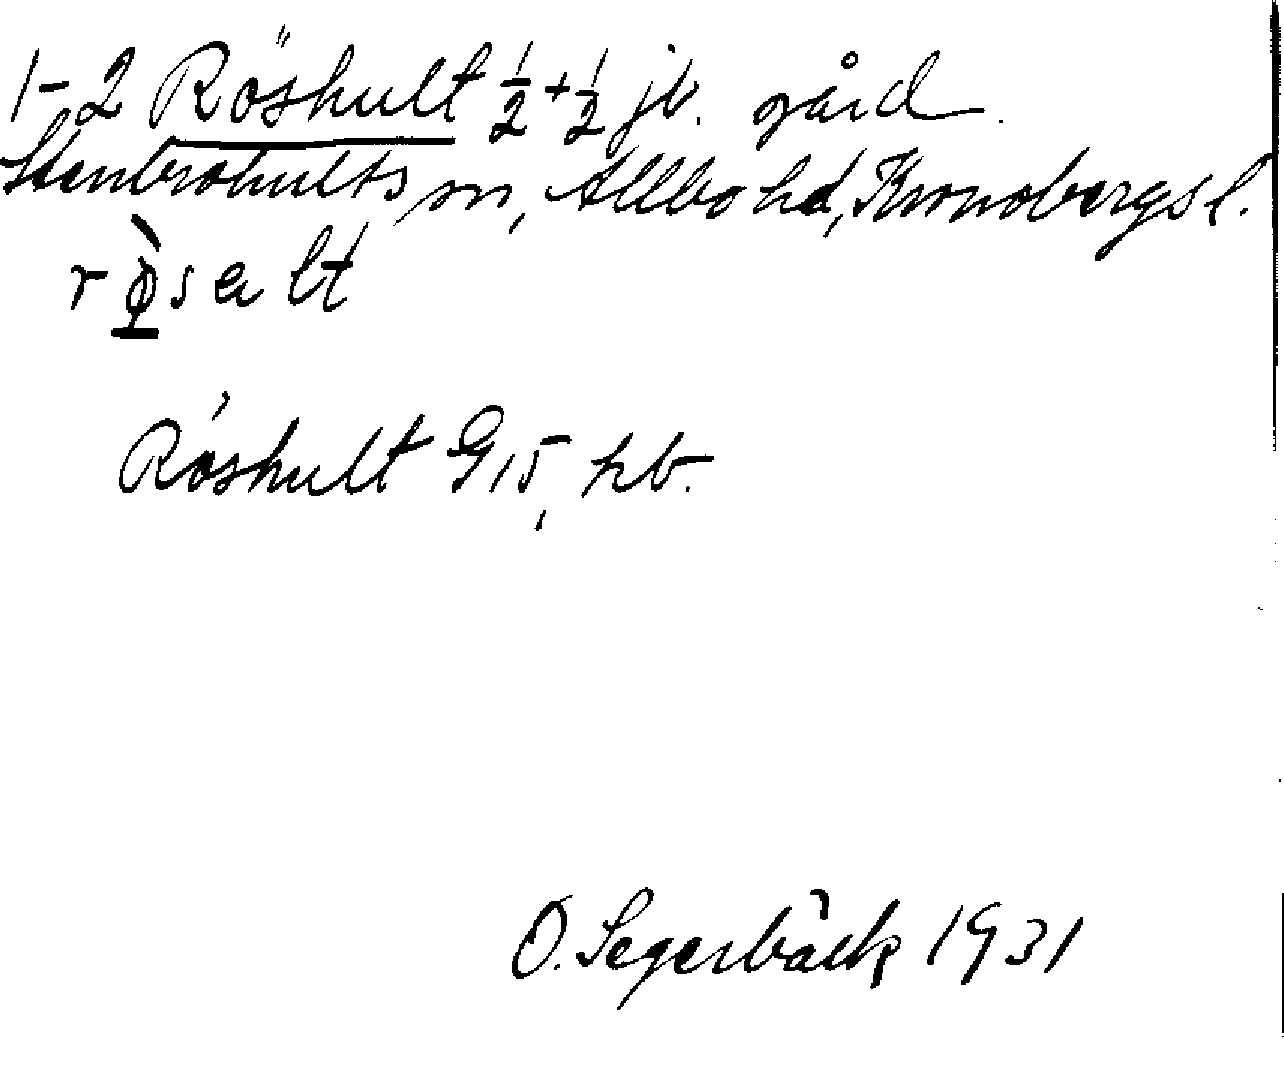 1-2 Röshult ½+½ jb. gård.
Stenbrohults sn, Allbo hd, Kronobergs l.
Röshult G15, hb.
O. Segerbäck 1931